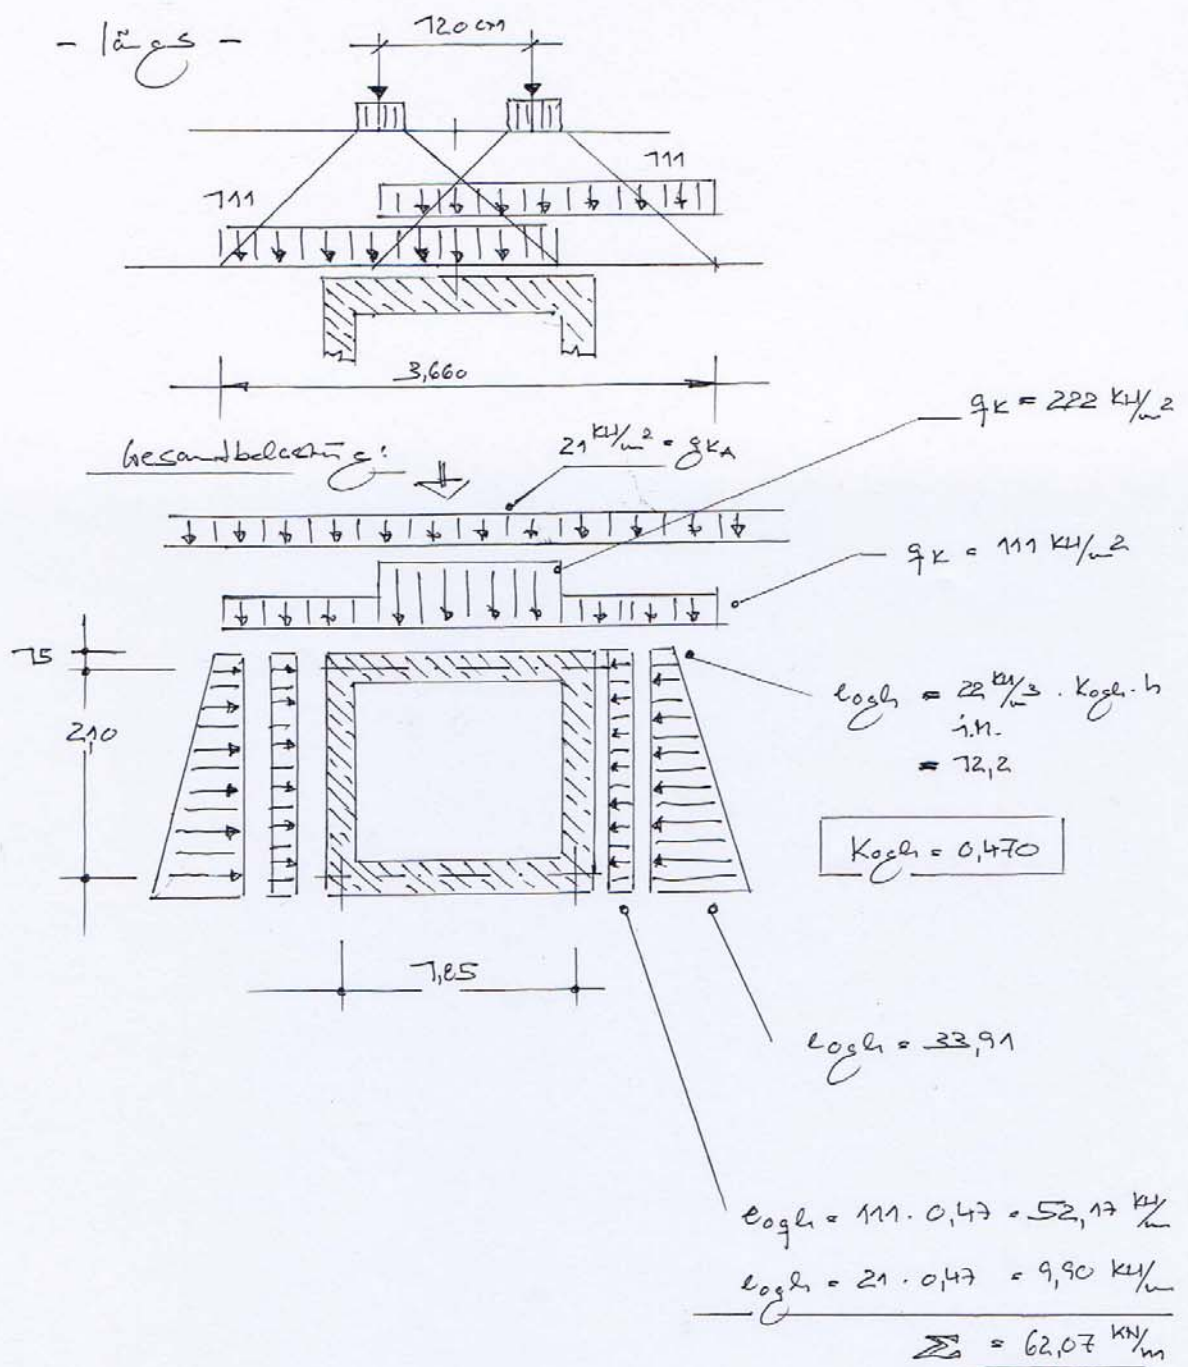 - längs -
120 cm
111
111
3,660
qK = 222 KN/m²
Gesamtbelastung:
21 KN/m² = gKA
qK = 111 KN/m²
15
2,10
eogh = 22 KN/m³ · Kogh · h
i.M.
= 12,2
Kogh = 0,470
1,85
eogh = 33,91
eogh = 111 · 0,47 = 52,17 KN/m
eogh = 21 · 0,47 = 9,90 KN/m
Σ = 62,07 KN/m